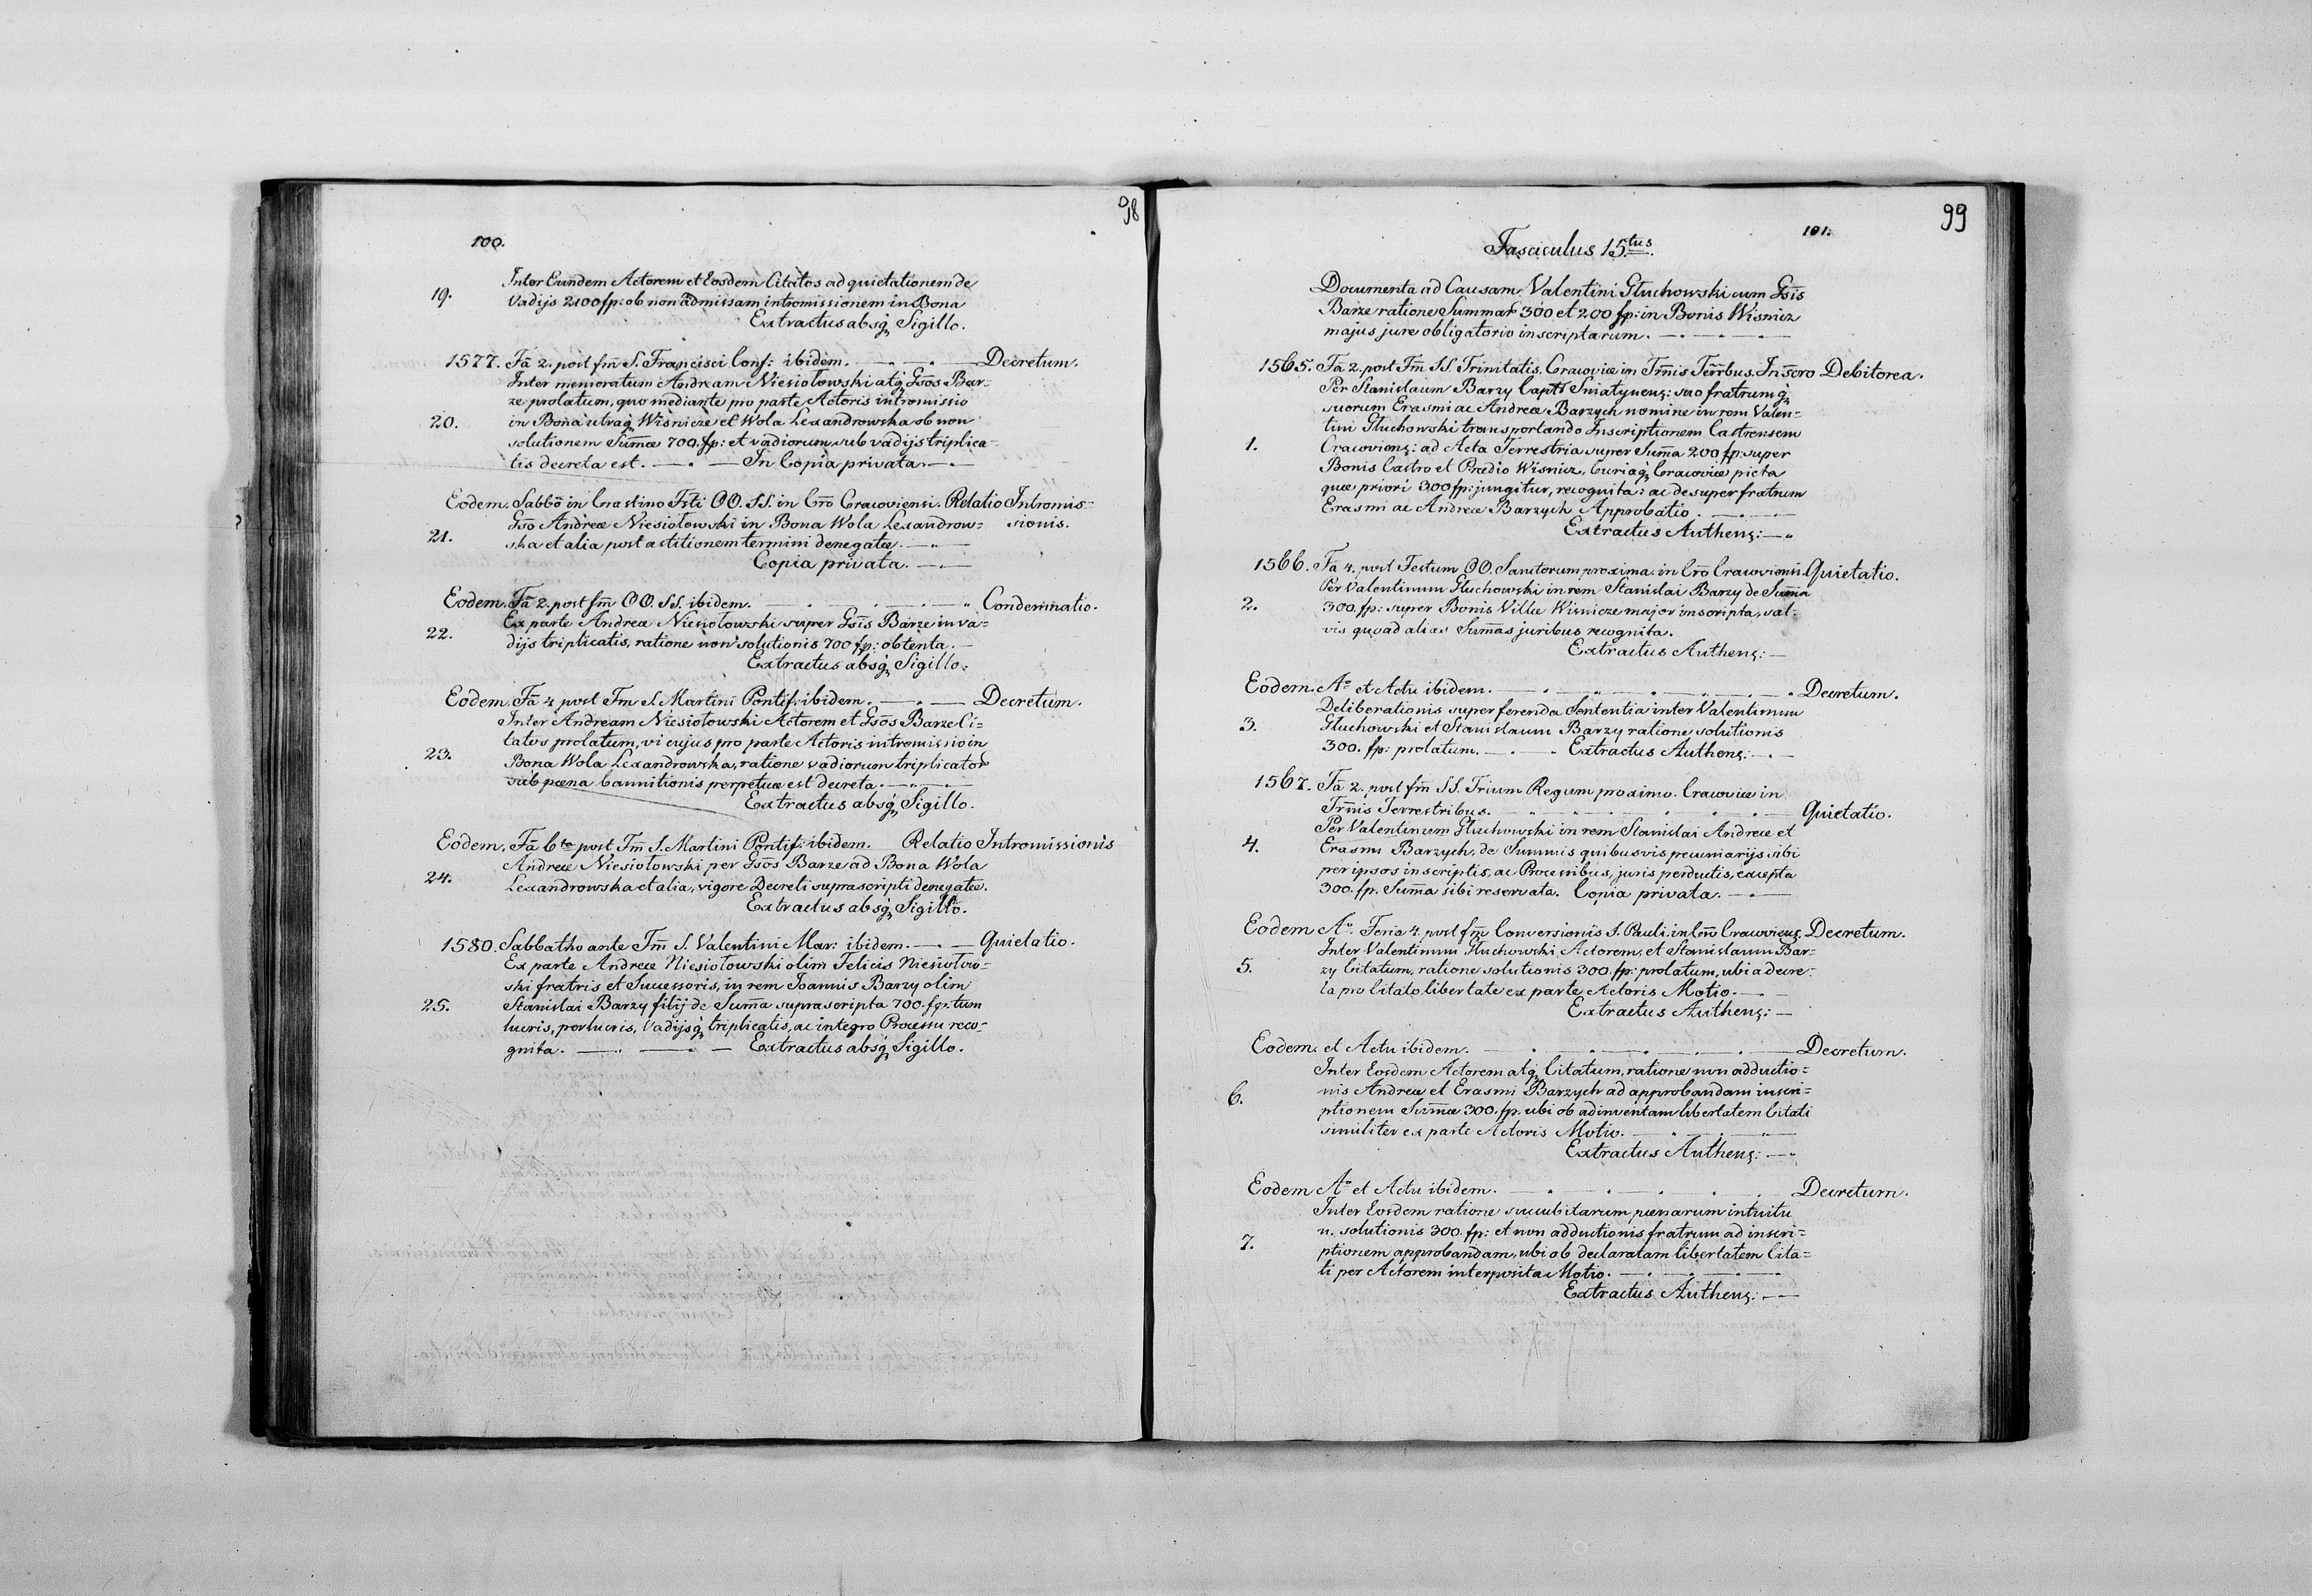 98
100.
Inter Eundem Actorem et Eosdem Citatos ad quietationem de
19. Vadijs 2100 fp: ob non admissam intromissionem in Bona
Extractus absq Sigillo.
1577. Fã 2. post fm̃ S. Francisci Conf: ibidem. Decretum.
Inter memoratum Andream Niesiołowski atq Gsõs Bar-
ze prolatum, quo mediante pro parte Actoris intromissio
20. in Bona utraq Wisnicze et Wola Lexandrowska ob non
solutionem Sum̃æ 700. fp: et vadiorum sub vadijs triplica-
tis decreta est. In Copia privata.
Eodem. Sabbõ in Crastino Fsti OO. SS. in Crõ Cracoviensi. Relatio Intromis-
Gsõ Andreæ Niesiołowski in Bona Wola Lexandrow= sionis.
21. ska et alia post astitionem termini denegatæ.
Copia privata.
Eodem. Fã 2. post fm̃ OO. SS. ibidem. Condemnatio.
Ex parte Andreæ Niesiołowski super Gsĩs Barze in va=
22. dijs triplicatis, ratione non solutionis 700 fp: obtenta.
Extractus absq Sigillo.
Eodem. Fã 4 post Fm̃ S. Martini Pontif: ibidem. Decretum.
Inter Andream Niesiołowski Actorem et Gsõs Barze Ci=
tatos prolatum, vi cujus pro parte Actoris intromissio in
23. Bona Wola Lexandrowska, ratione vadiorum triplicator
sub pœna bannitionis perpetuæ est decreta.
Extractus absq Sigillo.
Eodem. Fã 6ta post Fm̃ S. Martini Pontif: ibidem. Relatio Intromissionis
Andreæ Niesiołowski per Gsõs Barze ad Bona Wola
24. Lexandrowska et alia, vigore Decreti suprascripti denegatæ.
Extractus absq Sigillo.
1580. Sabbatho ante Fm̃ S. Valentini Mar: ibidem. Quietatio.
Ex parte Andreæ Niesiołowski olim Felicis Niesiołow=
ski fratris et Successoris, in rem Joannis Barzy olim
25. Stanislai Barzy filij de Sum̃a suprascripta 700. fp. tum
lucris, perlucris, Vadijsq triplicatis, ac integro Processu reco-
gnita. Extractus absq Sigillo.
99
101.
Fasciculus 15tus.
Documenta ad Causam Valentini Głuchowski cum Gsĩs
Barze ratione Summar 300 et 200 fp: in Bonis Wisnicz
majus jure obligatorio inscriptarum.
1565. Fã 2. post Fm̃ SS. Trinitatis. Cracoviæ in Trm̃is Terr̃bus. Inscro Debitorea.
Per Stanislaum Barzy Capt Sniatynens: suo fratrumq
suorum Erasmi ac Andreæ Barzych nomine in rem Valen-
tini Głuchowski transportando Inscriptionem Castrensem
1. Cracoviens: ad Acta Terrestria super Sum̃a 200 fp: super
Bonis Castro et Prædio Wisnicz, Curiaq Cracoviæ picta
quæ priori 300 fp: jungitur, recognita: ac desuper fratrum
Erasmi ac Andreæ Barzych Approbatio.
Extractus Authens:
1566. Fã 4. post Festum OO. Sanctorum proxima. in Crõ Cracoviensi. Quietatio.
Per Valentinum Głuchowski in rem Stanislai Barzy de Sum̃a
2. 300. fp: super Bonis Villæ Wisnicze major inscripta, sal-
vis quoad alias Sum̃as juribus recognita.
Extractus Authens:
Eodem. Ao et Actu ibidem. Decretum.
Deliberationis super ferenda Sententia inter Valentinum
3. Głuchowski et Stanislaum Barzy ratione solutionis
300. fp: prolatum. Extractus Authens:
1567. Fã 2. post fm̃ SS. Trium Regum proximo. Cracoviæ in
Trm̃is Terrestribus. Quietatio.
Per Valentinum Głuchowski in rem Stanislai Andreæ et
4. Erasmi Barzych, de Summis quibusvis pecuniarijs sibi
per ipsos inscriptis, ac Processibus, juris perductis, excepta
300. fp. Sum̃a sibi reservata. Copia privata.
Eodem Ao. Feria 4. post fm̃ Conversionis S. Pauli. in Crõ Cracoviens. Decretum.
Inter Valentinum Głuchowski Actorem, et Stanislaum Bar-
5. zy Citatum, ratione solutionis 300. fp: prolatum, ubi a decre-
ta pro Citato libertate ex parte Actoris Motio.
Extractus Authens:
Eodem. et Actu ibidem. Decretum.
Inter Eosdem Actorem atq Citatum, ratione non adductio=
6. nis Andreæ et Erasmi Barzych ad approbandam inscri=
ptionem Sum̃æ 300. fp. ubi ob adinventam libertatem Citati
similiter ex parte Actoris Motio.
Extractus Authens:
Eodem Ao et Actu ibidem. Decretum.
Inter Eosdem ratione succubitarum pœnarum intuitu
n. solutionis 300. fp: et non adductionis fratrum ad inscri=
7. ptionem approbandam, ubi ob declaratam libertatem Cita=
ti per Actorem interposita Motio.
Extractus Authens: